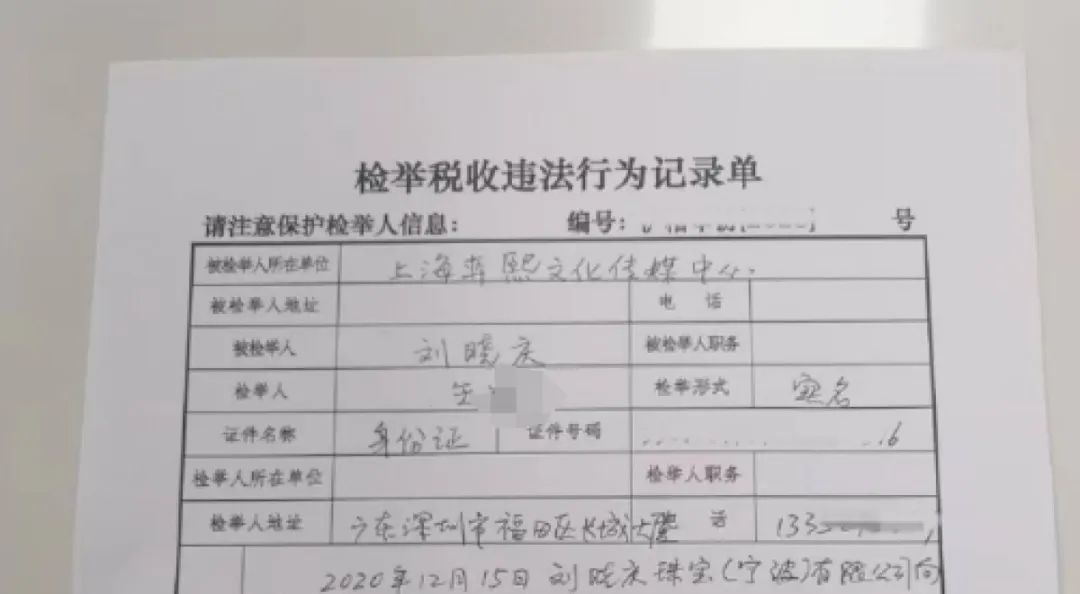 检举税收违法行为记录单
请注意保护检举人信息： 编号： 号
被检举人所在单位 上海 熙文化传媒中心.
被检举人地址 电 话
被检举人 刘晓庆 被检举人职务
检举人 检举形式 实名
证件名称 身份证 证件号码 16
检举人所在单位 检举人职务
检举人地址 广东深圳市福田区长城大厦 话 133
2020年12月15日 刘晓庆珠宝(宁波)有限公司向